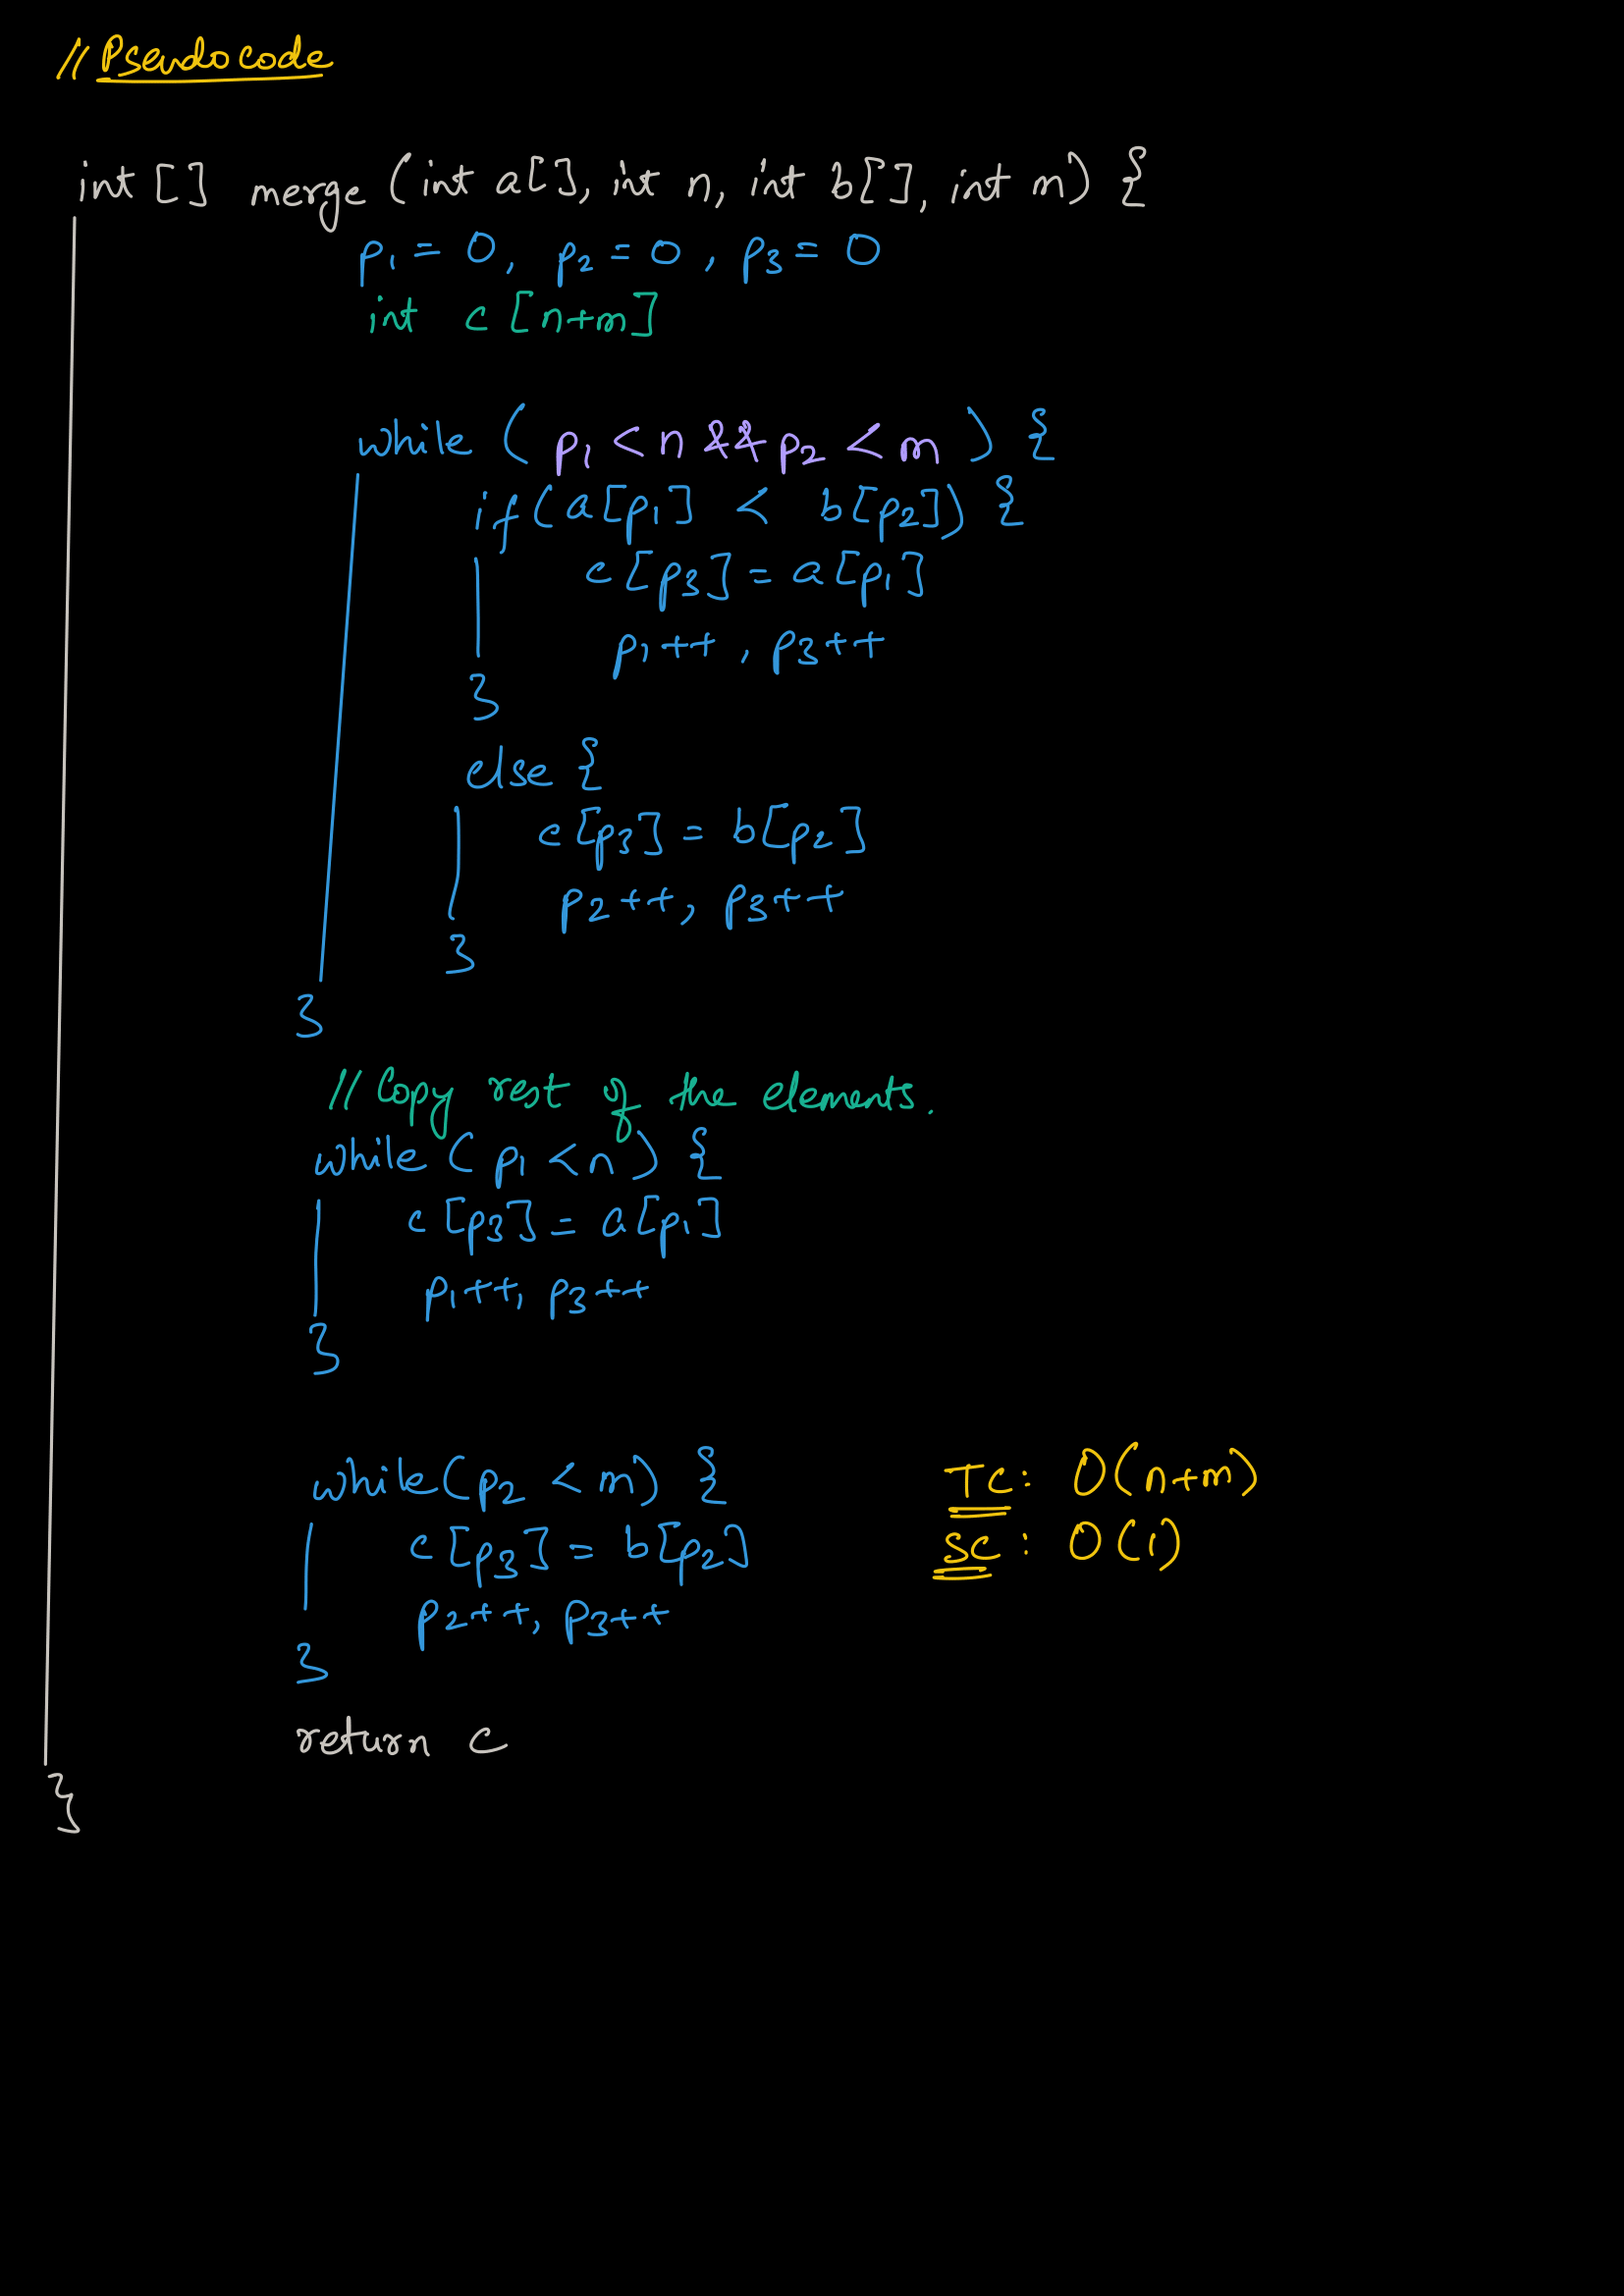 // Pseudocode
int [] merge (int a[], int n, int b[], int m) {
p1 = 0, p2 = 0, p3 = 0
int c [n+m]
while ( p1 < n && p2 < m ) {
if (a[p1] < b[p2]) {
c[p3] = a[p1]
p1++, p3++
}
else {
c[p3] = b[p2]
p2++, p3++
}
}
// Copy rest of the elements.
while (p1 < n) {
c[p3] = a[p1]
p1++, p3++
}
while (p2 < m) {
c[p3] = b[p2]
p2++, p3++
}
TC: O(n+m)
SC: O(1)
return c
}